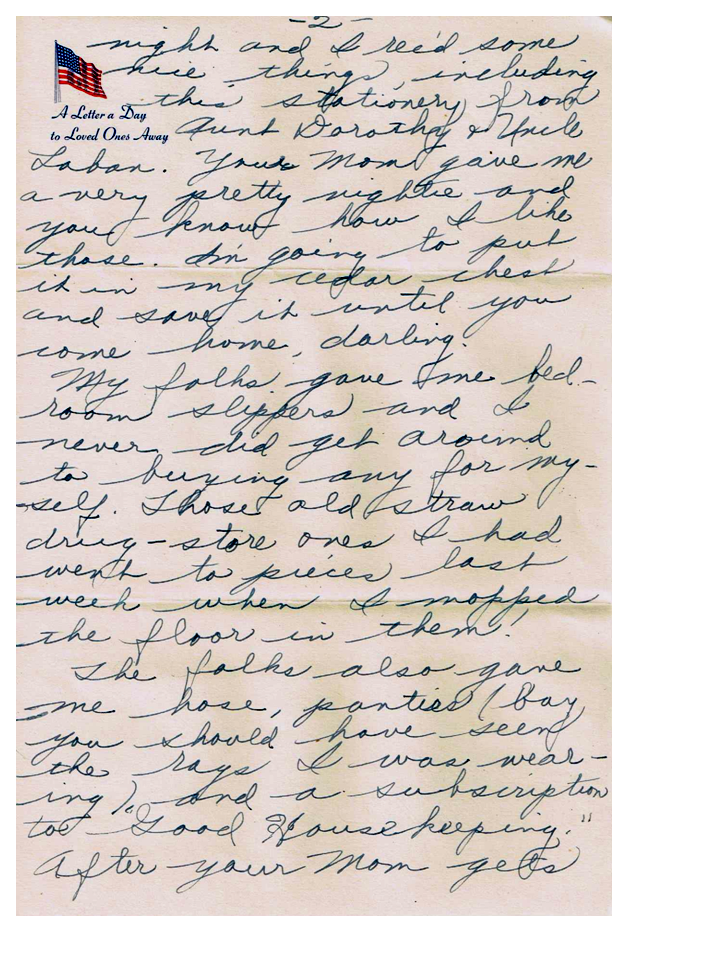 -2-
night and I rec'd some
nice things, including
this stationery from
A Letter a Day
to Loved Ones Away
Aunt Dorothy & Uncle
Laban. Your Mom gave me
a very pretty nightie and
you know how I like
those. I'm going to put
it in my cedar chest
and save it until you
come home, darling.
My folks gave me bed-
room slippers and I
never did get around
to buying any for my-
self. Those old straw
drug-store ones I had
went to pieces last
week when I mopped
the floor in them!
The folks also gave
me hose, panties (boy
you should have seen
the rags I was wear-
ing), and a subscription
to "Good Housekeeping."
After your Mom gets